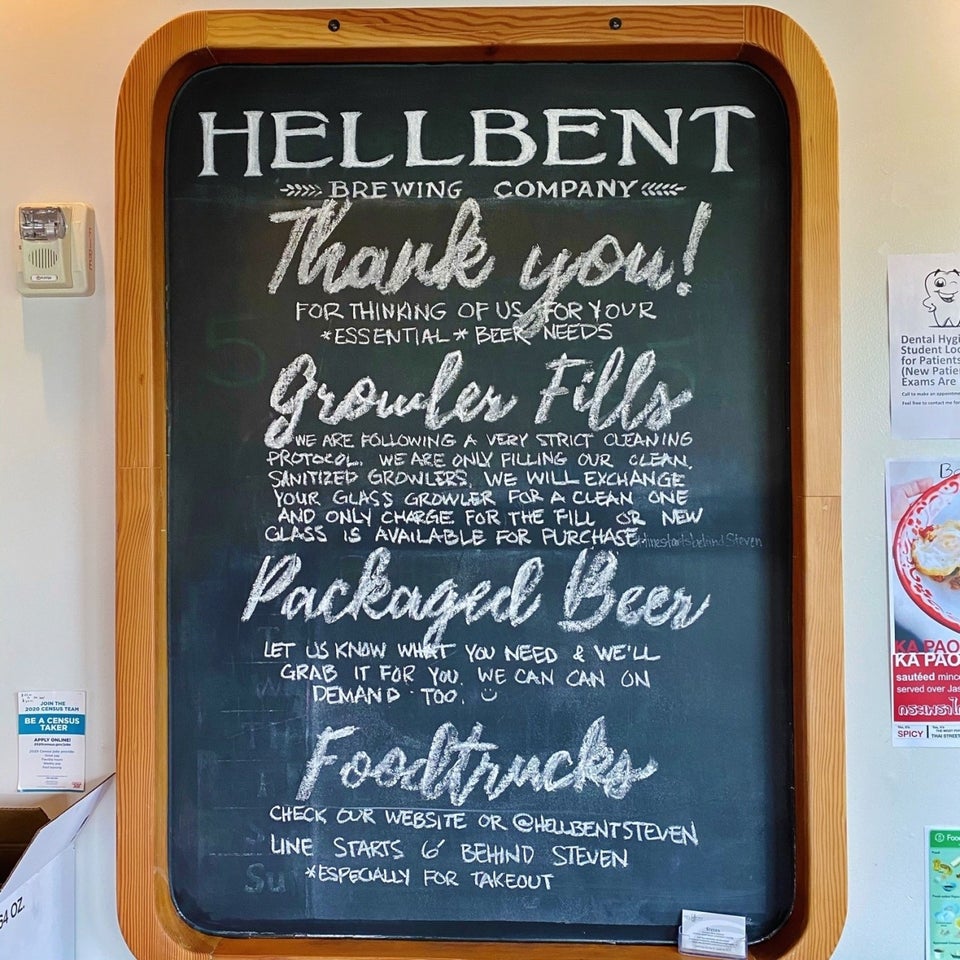 HELLBENT
BREWING COMPANY
Thank you!
FOR THINKING OF US FOR YOUR
*ESSENTIAL* BEER NEEDS
Growler Fills
WE ARE FOLLOWING A VERY STRICT CLEANING
PROTOCOL. WE ARE ONLY FILLING OUR CLEAN,
SANITIZED GROWLERS. WE WILL EXCHANGE
YOUR GLASS GROWLER FOR A CLEAN ONE
AND ONLY CHARGE FOR THE FILL OR NEW
GLASS IS AVAILABLE FOR PURCHASE
#linestartsbehindSteven
Packaged Beer
LET US KNOW WHAT YOU NEED & WE'LL
GRAB IT FOR YOU. WE CAN CAN ON
DEMAND TOO.
Foodtrucks
CHECK OUR WEBSITE OR @HELLBENTSTEVEN
LINE STARTS 6' BEHIND STEVEN
*ESPECIALLY FOR TAKEOUT
Su
JOIN THE
2020 CENSUS TEAM
BE A CENSUS
TAKER
APPLY ONLINE!
2020census.gov/jobs
64 OZ.
Dental Hygi
Student Loo
for Patients
(New Patie
Exams Are
Call to make an appointme
Feel free to contact me fo
KA PAO
KA PAO
sautéed minc
served over Jas
กระเพราไ
SPICY
THAI STREET
Foo
Steven